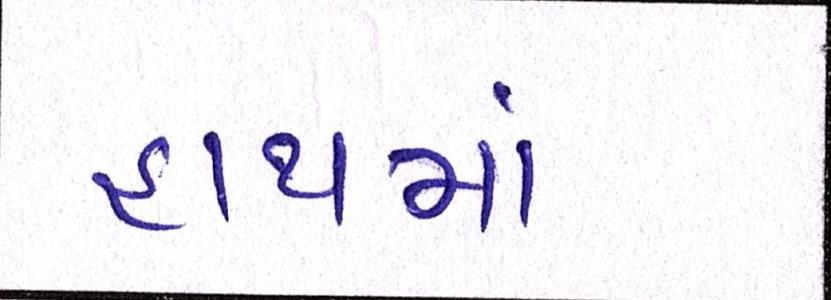 હાથમાં